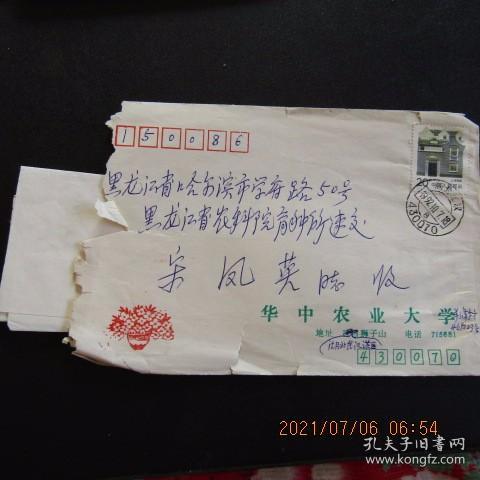 150086
黑龙江省哈尔滨市学府路50号
黑龙江省农科院育种所速交
宋凤英 收
华中农业大学
地址 狮子山 电话 715681
430070
430070
2021/07/06 06:54
孔夫子旧书网
www.kongfz.com